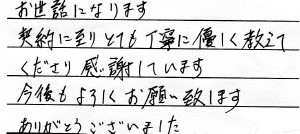 お世話になります
契約に至りとても丁寧に優しく教えて
くださり感謝しています
今後もよろしくお願い致します
ありがとうございました